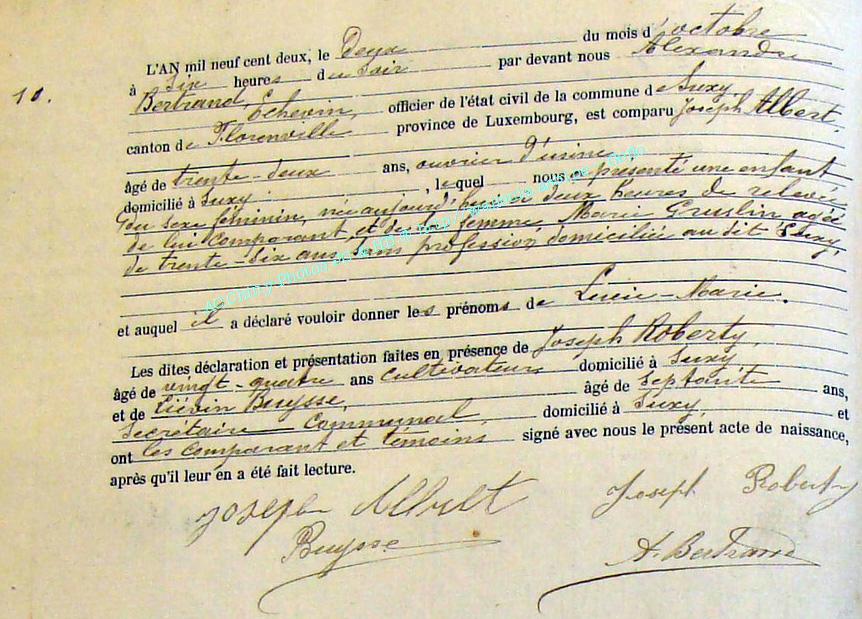 L'AN mil neuf cent deux, le Deux du mois d'octobre
10. à Six heures du soir par devant nous Alexandre
Bertrand, Échevin, officier de l'état civil de la commune de Suxy,
canton de Florenville province de Luxembourg, est comparu Joseph Albert,
âgé de trente-deux ans, ouvrier d'usine
domicilié à Suxy, lequel nous a présenté une enfant
du sexe féminin, née aujourd'hui à deux heures de relevée,
de lui Comparant, et de la femme Marie Gruslin agée
de trente-six ans, sans profession, domiciliée au dit Suxy,
et auquel il a déclaré vouloir donner les prénoms de Lucie-Marie.
Les dites déclaration et présentation faites en présence de Joseph Roberty,
âgé de vingt-quatre ans Cultivateur domicilié à Suxy
et de Liévin Buysse, âgé de Septante ans,
Secrétaire Communal, domicilié à Suxy, et
ont les Comparant et témoins signé avec nous le présent acte de naissance,
après qu'il leur en a été fait lecture.
Joseph Albert Joseph Roberty
Buysse A. Bertrand